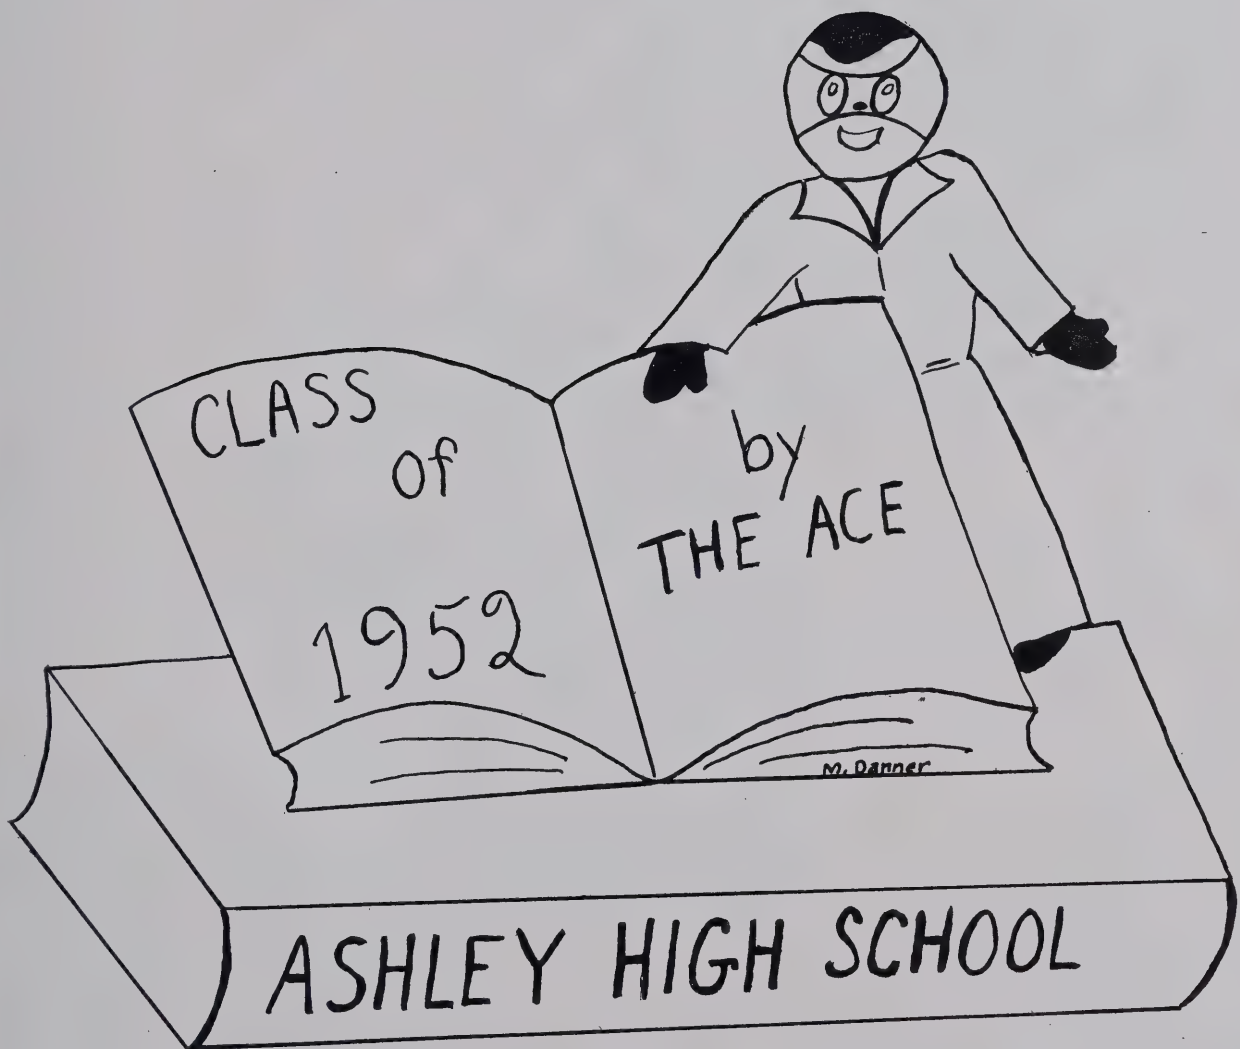 CLASS
of
1952
by
THE ACE
M. Danner
ASHLEY HIGH SCHOOL